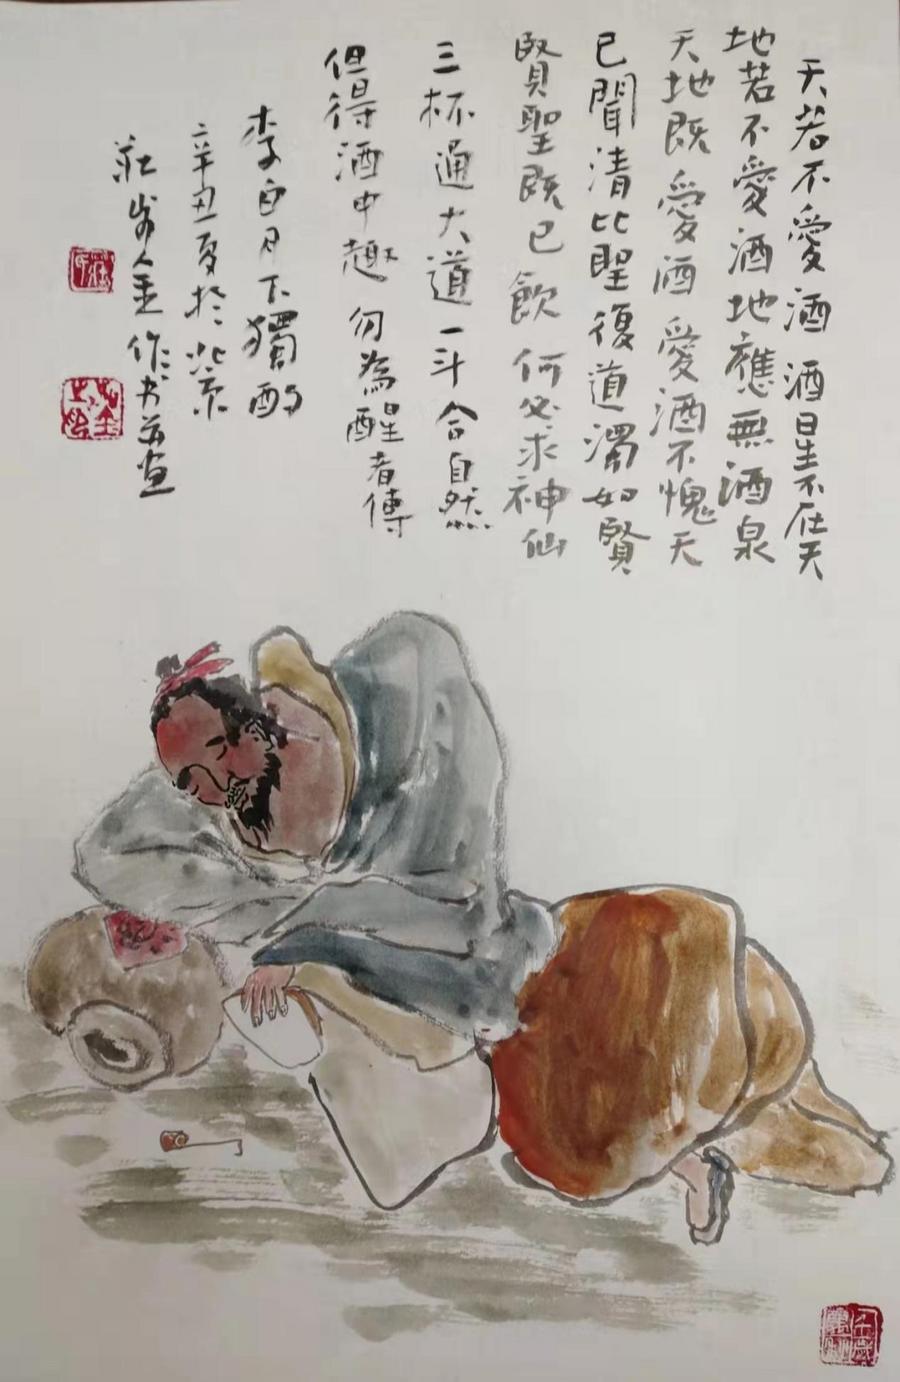 天若不愛酒酒星不在天
地若不愛酒地應無酒泉
天地既愛酒愛酒不愧天
已聞清比聖復道濁如賢
賢聖既已飲何必求神仙
三杯通大道一斗合自然
但得酒中趣勿為醒者傳
李白月下獨酌
辛丑夏於北京